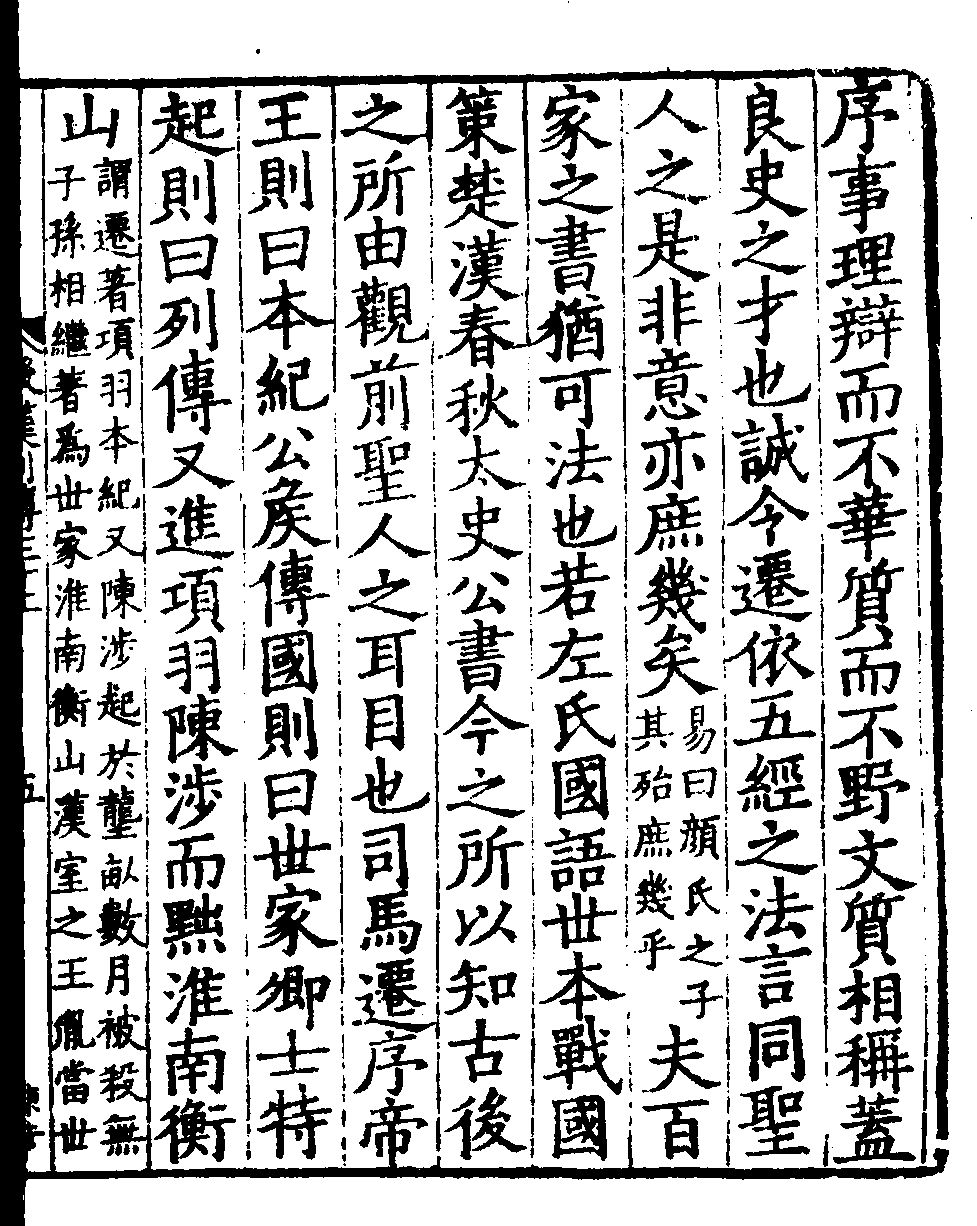 序事理辯而不華質而不野文質相稱蓋
良史之才也誠令遷依五經之法言同聖
人之是非意亦庶幾矣
易曰顏氏之子
其殆庶幾乎
夫百
家之書猶可法也若左氏國語世本戰國
策楚漢春秋太史公書今之所以知古後
之所由觀前聖人之耳目也司馬遷序帝
王則曰本紀公矦傳國則曰世家卿士特
起則曰列傳又進項羽陳涉而黜淮南衡
山
謂遷著項羽本紀又陳涉起於壟畝數月被殺無
子孫相繼著爲世家淮南衡山漢室之王胤當世